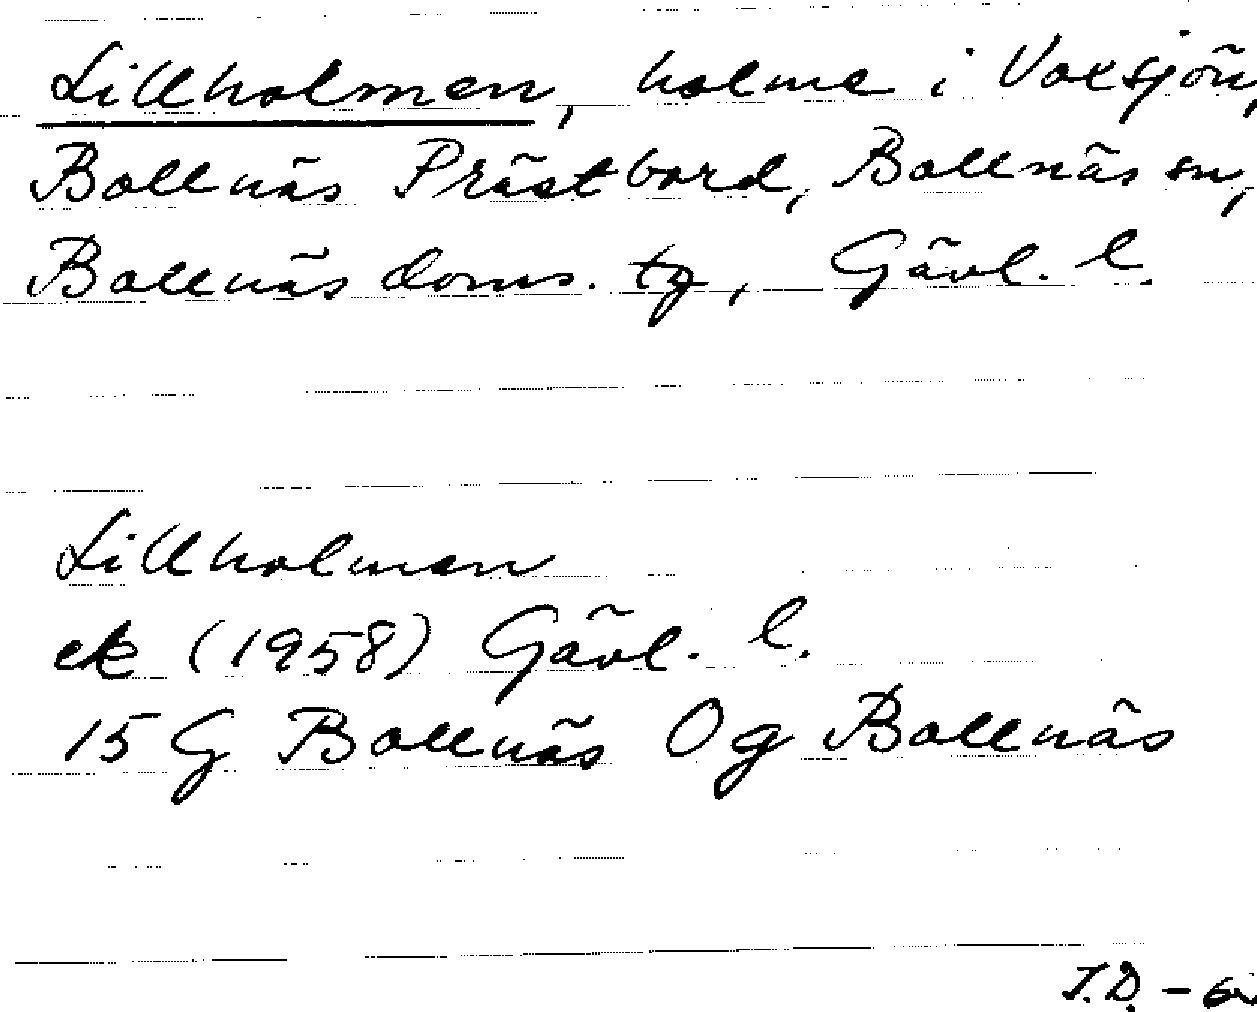 Lillholmen, holme i Voxsjön,
Bollnäs Prästbord, Bollnäs sn,
Bollnäs doms. tg, Gävl. l.
Lillholmen
ek (1958) Gävl. l.
15 G Bollnäs Og Bollnäs
J.D. -